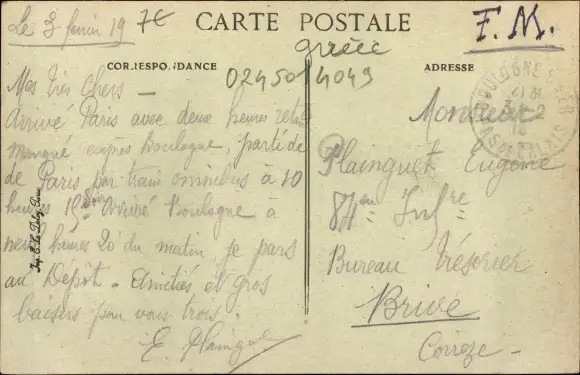 Le 3 fevrier 19
7€
CARTE POSTALE
F. M.
grèèc
CORRESPONDANCE
024501 4049
ADRESSE
BOULOGNE
Mes très chers —
Arrivé Paris avec deux heures retard
manqué exprès Boulogne, parti de
de Paris par train omnibus à 10
heures 15 soir Arrivé Boulogne à
neuf heures 20 du matin je pars
au Dépôt. Amitiés et gros
baisers pour vous trois.
E. Plainguet
Monsieur
Plainguet Eugène
84me Infrie
Bureau Trésorier
Brive
Corrèze -
Imp. E. Le Deley, Paris